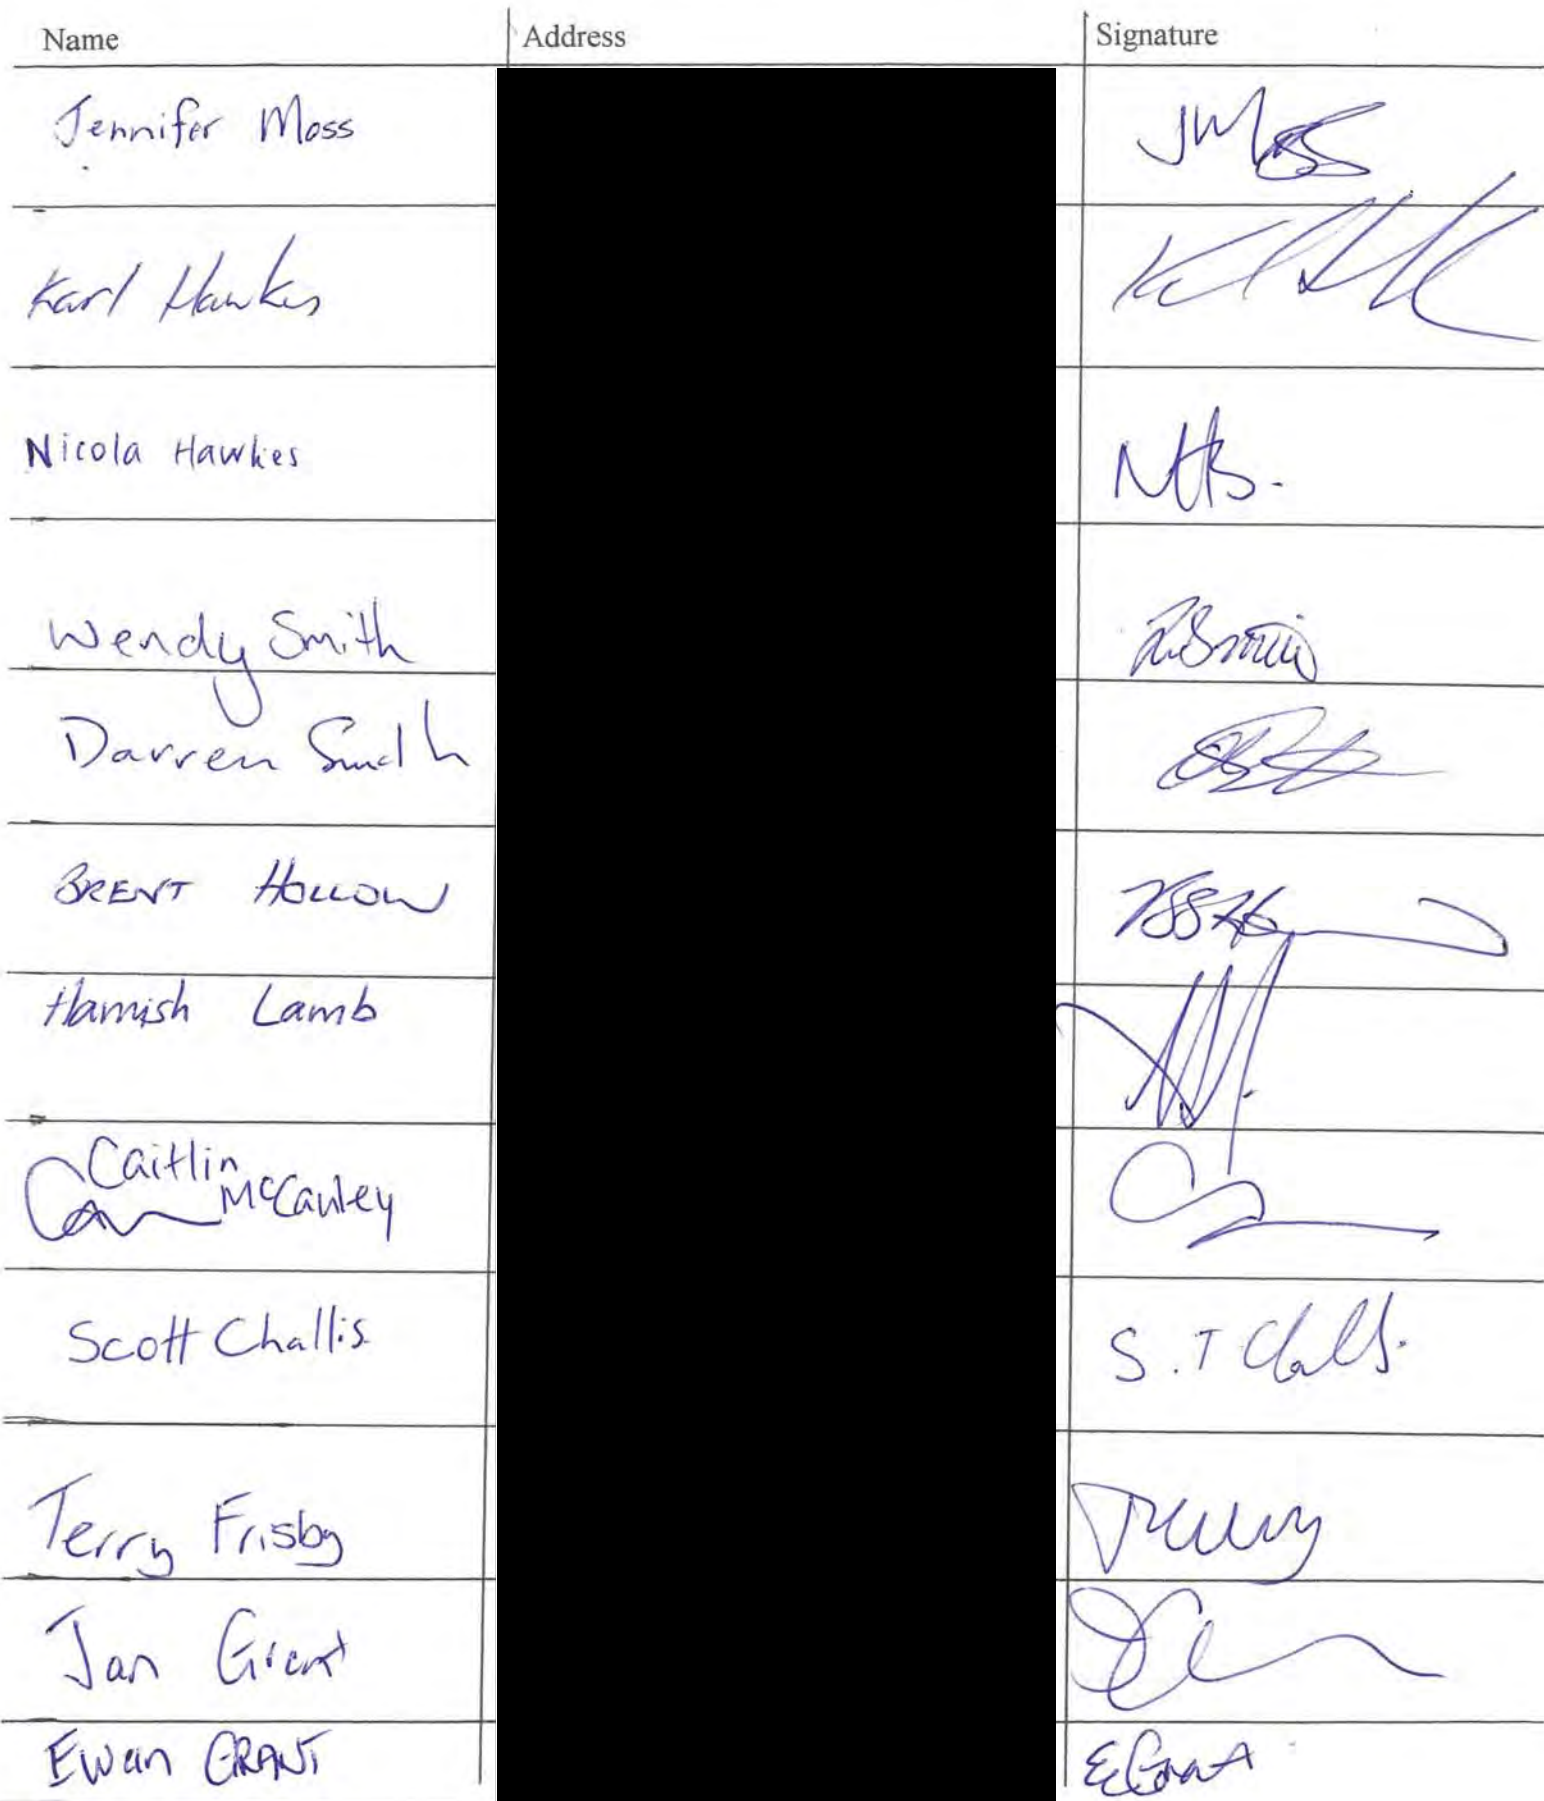 Name Address Signature
Jennifer Moss JMoss
Karl Hawkes
Nicola Hawkes
Wendy Smith
Darren Smith
BRENT HOLLOW
Hamish Lamb
Caitlin
McCauley
Scott Challis S.T Challis.
Terry Frisby Terry
Jan Grant
Ewan GRANT E Grant